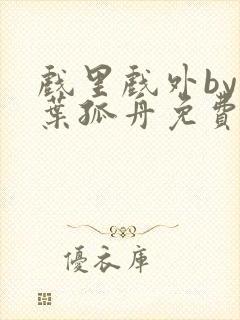 戲里戲外by
葉孤丹免費
優衣庫